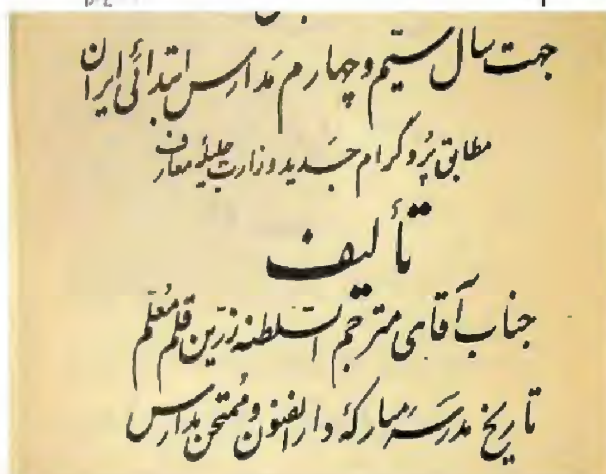 جهت سال سیم و چهارم مدارس ابتدائی ایران
مطابق پُروگرام جدید وزارت جلیلهٔ معارف
تألیف
جناب آقای مترجم السّلطنه زرّین قلم مُعلّم
تاریخ مدرسهٔ مبارکهٔ دارالفنون و مُمتحن مدارس